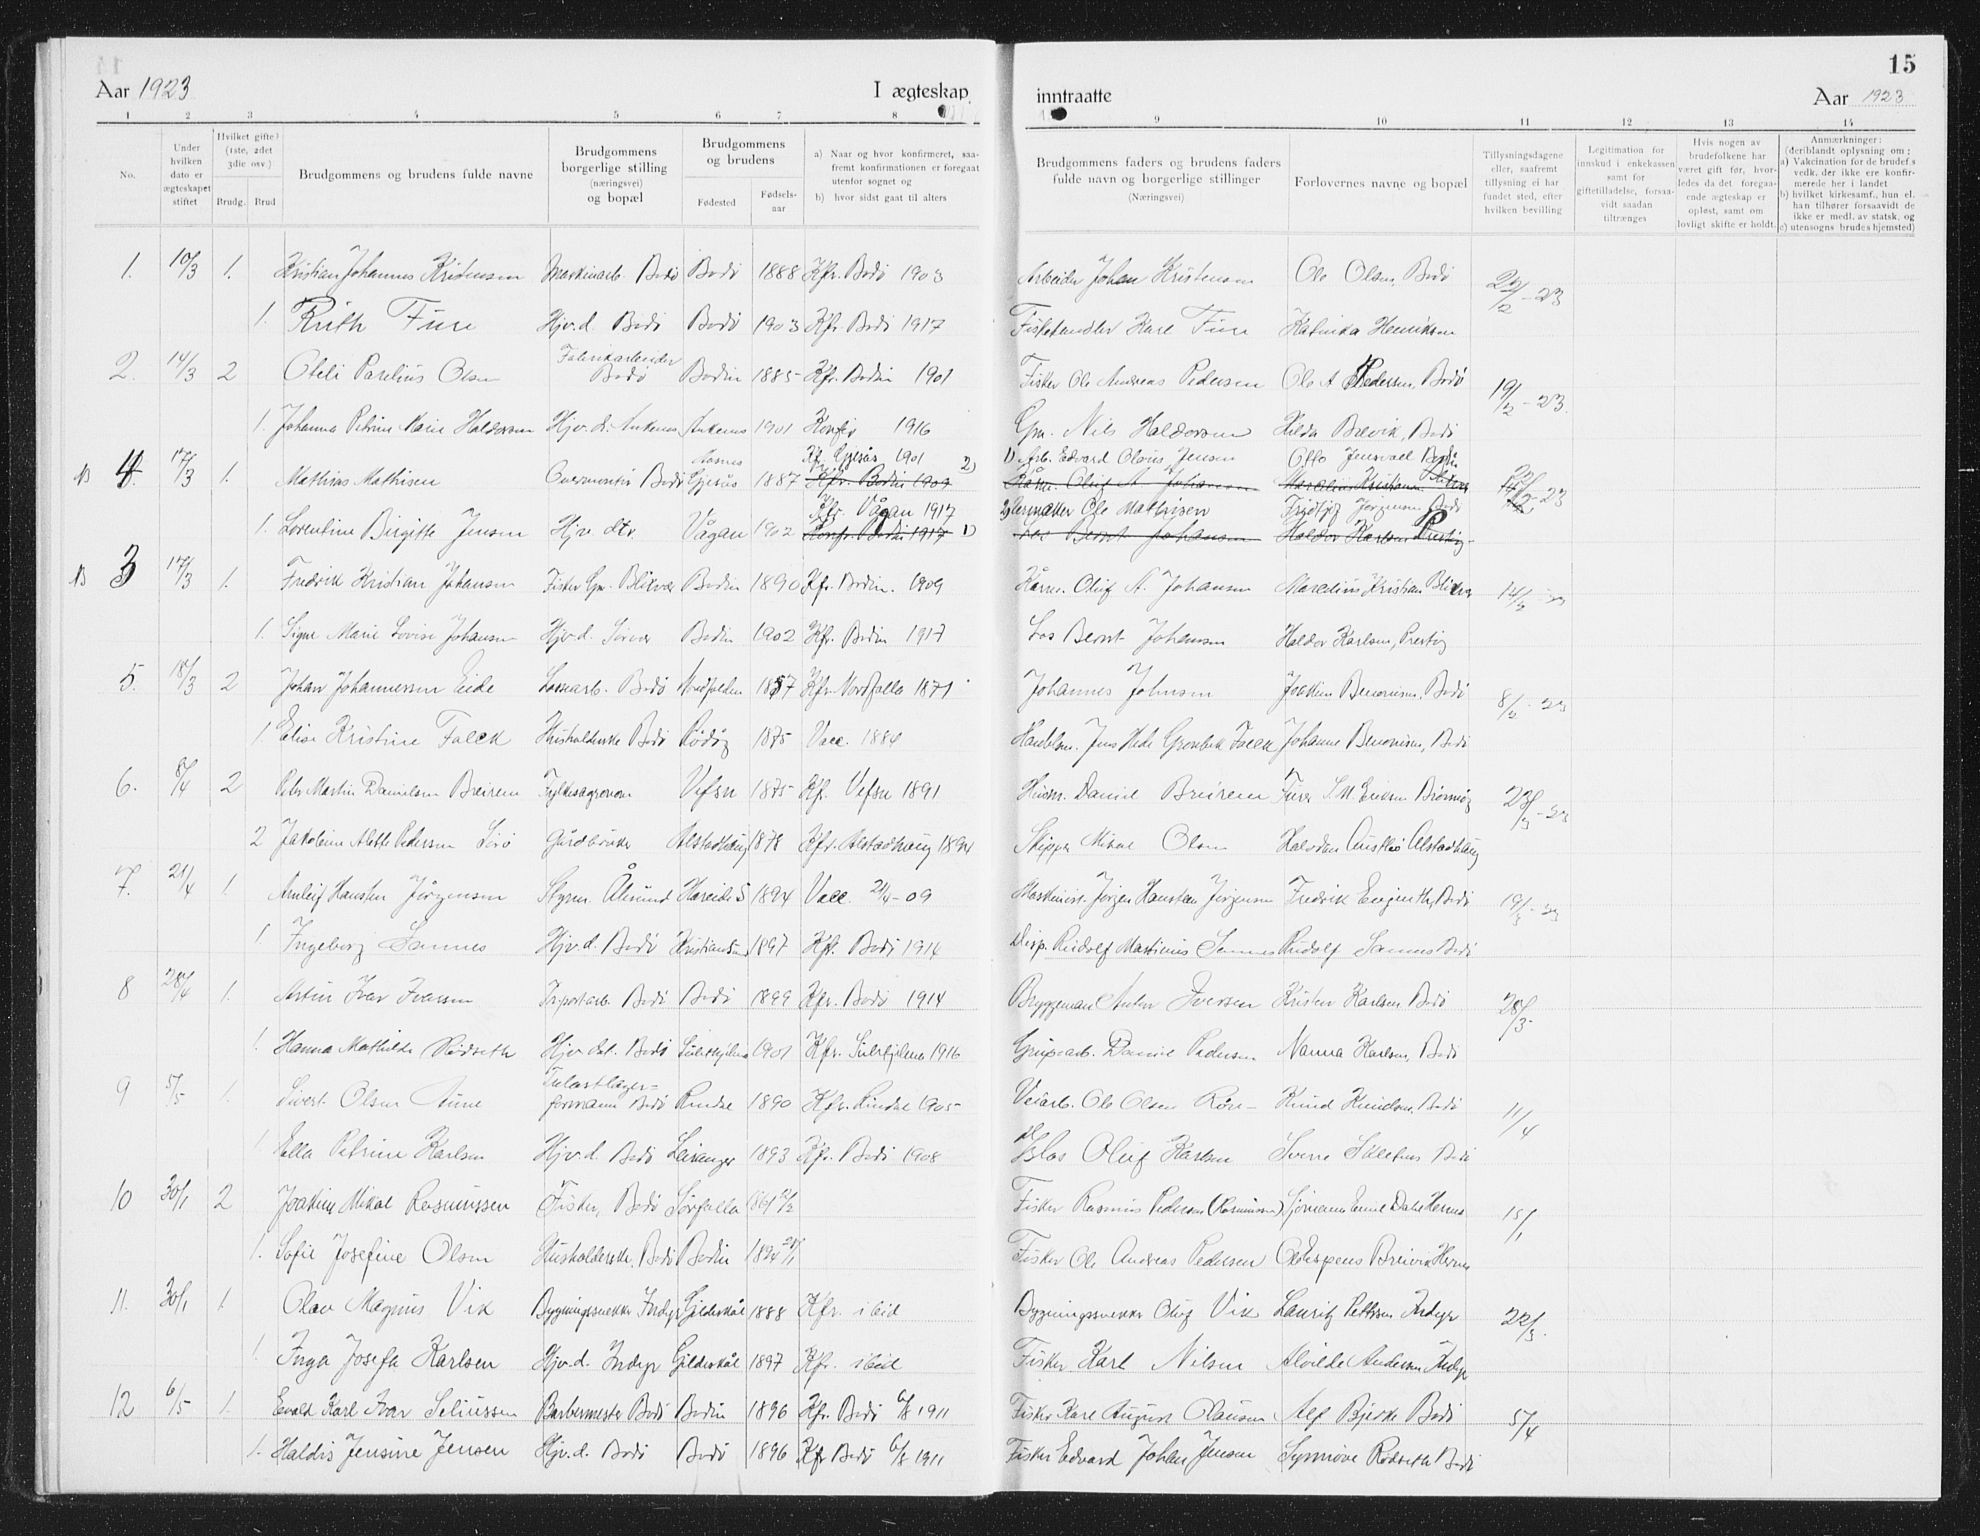 15
Aar 1923 I ægteskap inntraatte Aar 1923
1 2 3 4 5 6 7 8 9 10 11 12 13 14
No.
Under hvilken dato er ægteskapet stiftet
Hvilket gifte? (1ste, 2det 3die osv.)
Brudg. Brud
Brudgommens og brudens fulde navne
Brudgommens borgerlige stilling (næringsvei) og bopæl
Brudgommens og brudens
Fødested Fødsels-aar
a) Naar og hvor konfirmeret, saafremt konfirmationen er foregaat utenfor sognet og
b) hvor sidst gaat til alters
Brudgommens faders og brudens faders fulde navn og borgerlige stillinger (Næringsvei)
Forlovernes navne og bopæl
Tillysningsdagene eller, saafremt tillysning ei har fundet sted, efter hvilken bevilling
Legitimation for innskud i enkekassen samt for giftetilladelse, forsaavidt saadan tiltrænges
Hvis nogen av brudefolkene har været gift før, hvorledes da det foregaaende ægteskap er opløst, samt om lovligt skifte er holdt.
Anmærkninger: (deriblandt oplysning om;
a) Vakcination for de brudef.s vedk. der ikke ere konfirmerede her i landet
b) hvilket kirkesamf., hun el. han tilhører forsaavidt de ikke er medl. av statsk. og
c) utensogns brudes hjemsted)
1. 10/3 1. Kristian Johannes Kristensen Maskinarb. Bodø Bodø 1888 Kfr. Bodø 1903 Arbeider Johan Kristensen Ole Olsen, Bodø 22/2-23
1. Ruth Fure Hjv.d. Bodø Bodø 1903 Kfr. Bodø 1917 Fiskehandler Karl Fure Katinka Henriksen
2. 14/3 2 Oteli Parelius Olsen Fabrikarbeider Bodø Bodin 1885 Kfr. Bodin 1901 Fisker Ole Andreas Pedersen Ole A Pedersen, Bodø 19/2-23.
1. Johanna Petrine Marie Haldorsen Hjv.d. Ankenes Ankenes 1901 Konfr 1916 Gm. Nils Haldorsen Hilda Breivik, Bodø
NB 4. 17/3 1. Mathias Mathisen Overmontør Bodø Gjesås 1887 Kfr. Gjesås 1901 Kfr. Bodin 1909 2) 1) Arb. Edvard Olaus Jensen Otto Jensvoll Bodø Oluf A Johansen Marelius Kristian -23
1. Lorentine Birgitte Jensen Hjv. dtr. Vågan 1902 Kfr. Vågan 1917 Konfr. Bodin 1917 1) 2) Ole Mathisen Fridtjof Jørgensen Bodø Los Bernt Johansen Haldor Karlsen Prestøy
NB 3 17/3 1. Fredrik Kristian Johansen Fisker Gm. Blikvær Bodin 1890 Kfr. Bodin. 1909 Oluf A. Johansen Marelius Kristian Blikvær
1. Signe Marie Lovise Johansen Hjv.d. Bodin 1902 Kfr. Bodin 1917 Los Bernt Johansen Haldor Karlsen, Prestøy
5. 18/3 2 Johan Johannessen Eide Lossearb. Bodø Nordfolden 1857 Kfr. Nordfolla 1871 Johannes Johnsen Joakim Benonisen, Bodø 8/2-23
1. Elise Kristine Falck Husholderske Bodø Rødøy 1875 Vacc. 1884 Handelsm. Jens Hede Gronbek Falck Johanne Benonisen, Bodø
6. 8/4 2 Peter Martin Danielsen Breirem Fylkesagronom Vefsn 1875 Kfr. Vefsn 1891 Husm. Daniel Breirem 23/3-23
2 Jakobine Alette Pedersen Gårdbruker Alstadhaug 1878 Kfr. Alstadhaug 1894 Skipper Mikal Olsen Halvdan Alstadhaug
7. 21/4 1. Arnleif Hansten Jörgensen Styrm. Ålesund Hareide S 1894 Vacc. 21/4-09 Maskinist Jørgen Hansten Jørgensen Fredrik Bodø 19/3-23
1 Ingeborg Sannes Hjv.d. Bodø Kristiansund 1897 Kfr. Bodø 1914 Disp. Rudolf Martinius Sannes Rudolf Sannes Bodø
8 28/4 1. Artur Ivar Iversen Bodø Bodø 1899 Kfr. Bodø 1914 Bryggeman Anton Iversen Kristen Karlsen, Bodø 28/3-
1. Hanna Mathilde Rødseth Hjv.dat. Bodø Sulitjelma 1901 Kfr. Sulitjelma 1916 Grubearb. Daniel Pedersen Nanna Karlsen, Bodø
9 5/5 1. Sivert Olsen Aune Bodø Rindal 1890 Kfr. Rindal 1905 Veiarb. Ole Olsen Knud Knudsen, Bodø 11/4
1 Ella Petrine Karlsen Hjv.d. Bodø Leiranger 1893 Kfr. Bodø 1908 Olaf Karlsen Sverre Bodø
10 30/1 2 Joakim Mikal Rasmussen Fisker, Bodø Sørfolla 1861 Fisker Rasmus Pedersen (Rasmussen) Sjømann Emil Dahl Hernes 15/1
1. Sofie Josefine Olsen Husholderske, Bodø Bodin Fisker Ole Andreas Pedersen Ole Espens Breivik Hernes
11. 30/1 1. Olav Magnus Vik Bygningssnekker Inndyr Gildeskål 1888 Kfr. ibid Bygningssnekker Oluf Vik Lauritz Pettersen Indyr 22/3.
1 Inga Josefa Karlsen Hjv.d. Indyr Gildeskål 1897 Kfr. ibid Fisker Karl Nilsen Alvilde Andersen Indyr
12 6/5 1. Evald Karl Ivar Seliussen Barbermester Bodø Bodin 1896 Kfr. Bodø 6/8 1911 Fisker Karl August Clausen Alf Bjerke Bodø 5/4
1. Haldis Jensine Jensen Hjv.d. Bodø Bodø 1896 Kfr Bodø 6/8 1911 Fisker Edvard Johan Jensen Synnøve Rødseth Bodø